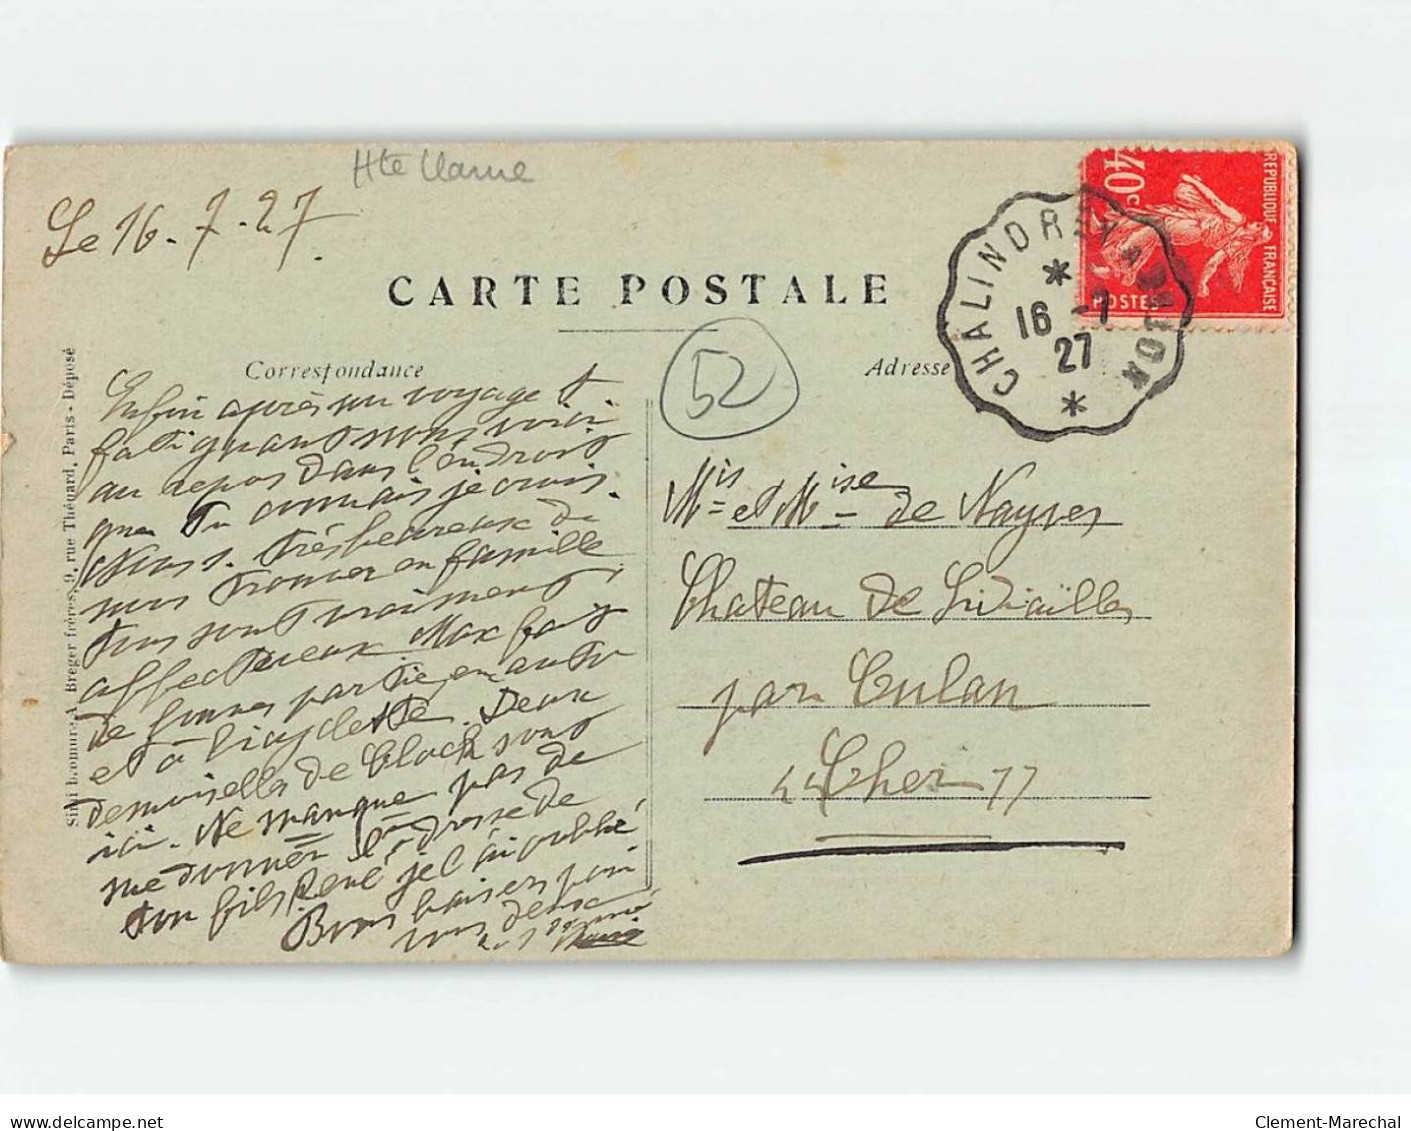 Hte Marne
Le 16.7.27.
CARTE POSTALE
Correspondance
Adresse
52
CHALINDREY A DIJON
16 -7
27
40c
REPUBLIQUE FRANÇAISE
POSTES
Simi-bromure A. Breger frères, 9, rue Thénard, Paris - Déposé
Enfin après un voyage
fatiguant nous voici
au repos dans l'endroit
que tu connais je crois.
Nous s. très heureux de
nous trouver en famille
tous sont vraiment
affectueux Max fait
de bonnes parties, en auto
et à bicyclette. Deux
demoiselles de Cloch sont
ici. Ne manque pas de
me donner l'adresse de
ton fils René je l'ai oublié
Bons baisers pour
vous deux
Mis et Mise de Nayves
Chateau de Sidiailles
par Culan
"Cher"
delcampe.net
Clement-Marechal